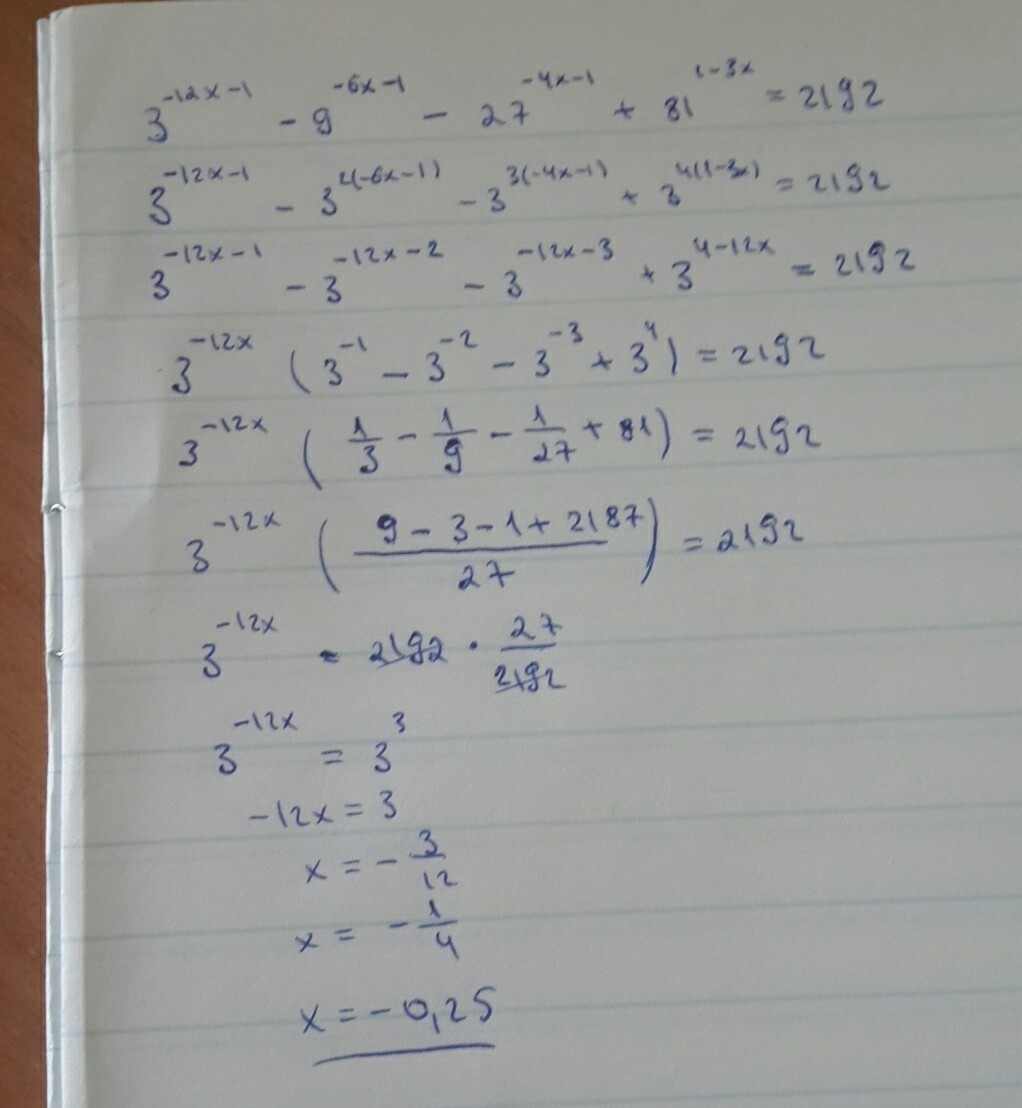 3^{-12x-1} - 9^{-6x-1} - 27^{-4x-1} + 81^{1-3x} = 2192
3^{-12x-1} - 3^{2(-6x-1)} - 3^{3(-4x-1)} + 3^{4(1-3x)} = 2192
3^{-12x-1} - 3^{-12x-2} - 3^{-12x-3} + 3^{4-12x} = 2192
3^{-12x} (3^{-1} - 3^{-2} - 3^{-3} + 3^{4}) = 2192
3^{-12x} (\frac{1}{3} - \frac{1}{9} - \frac{1}{27} + 81) = 2192
3^{-12x} (\frac{9-3-1+2187}{27}) = 2192
3^{-12x} = 2192 · \frac{27}{2192}
3^{-12x} = 3^{3}
-12x = 3
x = -\frac{3}{12}
x = -\frac{1}{4}
x = -0,25